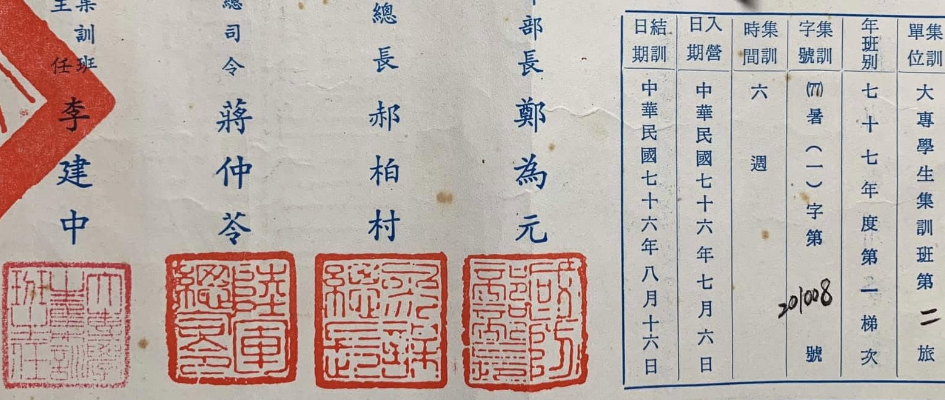 集訓單位
大專學生集訓班第二旅
年班別
七十七年度第一梯次
集訓字號
(77)暑(一)字第201008號
集訓時間
六週
入營日期
中華民國七十六年七月六日
結訓日期
中華民國七十六年八月十六日
部長鄭為元
總長郝柏村
總司令蔣仲苓
集訓班主任李建中
國防部部長
參謀總長
陸軍總司令